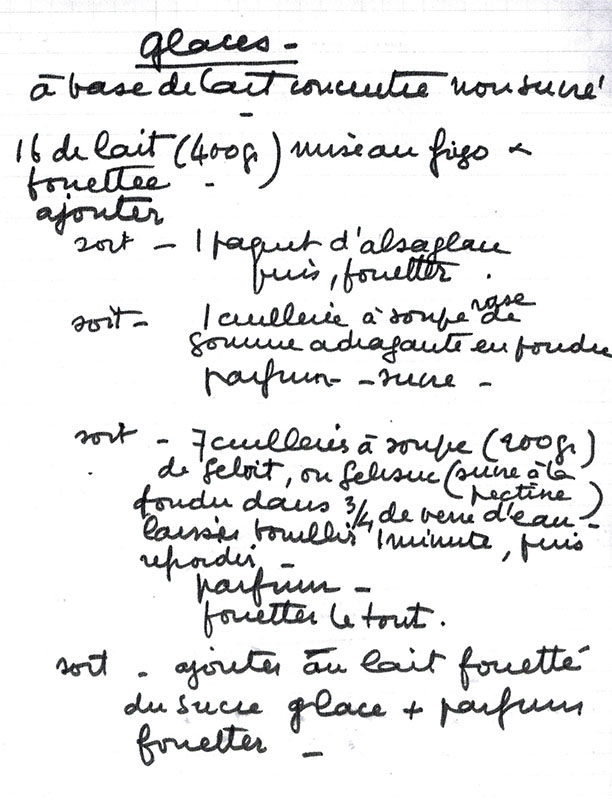 glaces -
à base de lait concentré non sucré
-
1 b de lait (400gr) mise au frigo &
fouettée -
ajouter
soit - 1 paquet d'alsaglace
puis, fouetter .
soit - 1 cuillerée à soupe rase de
gomme adragante en poudre
parfum - - sucre -
soit - 7 cuillerées à soupe (200gr)
de Geloit, ou Gelsuc (sucre à la
pectine)
fondu dans 3/4 de verre d'eau -
laisser bouillir 1 minute, puis
refroidir -
parfum -
fouetter le tout .
soit - ajouter au lait fouetté
du sucre glace + parfum
fouetter -